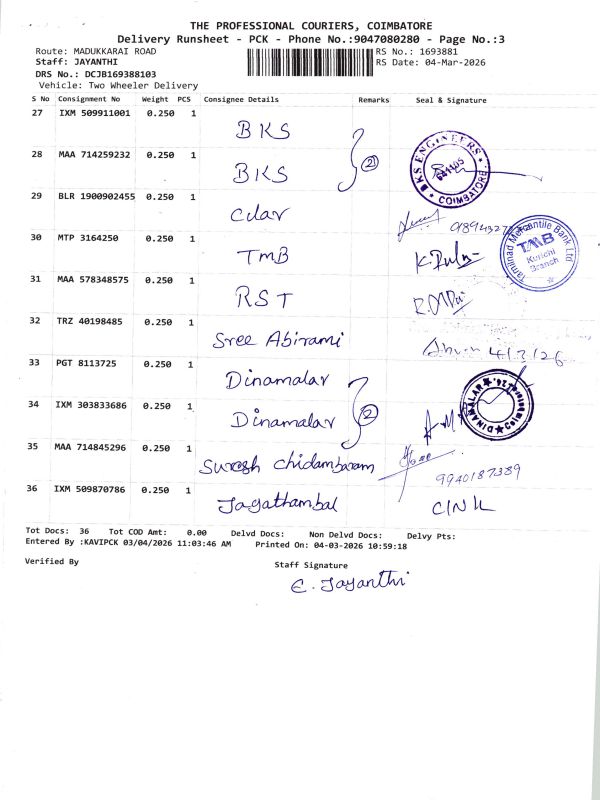 THE PROFESSIONAL COURIERS, COIMBATORE
Delivery Runsheet - PCK - Phone No.:9047080280 - Page No.:3
Route: MADUKKARAI ROAD
RS No.: 1693881
Staff: JAYANTHI
RS Date: 04-Mar-2026
DRS No.: DCJB169388103
Vehicle: Two Wheeler Delivery
S No Consignment No Weight PCS Consignee Details Remarks Seal & Signature
27 IXM 509911001 0.250 1 BKS
28 MAA 714259232 0.250 1 BKS
2
BKS ENGINEERS COIMBATORE
29 BLR 1900902455 0.250 1 Cilav
30 MTP 3164250 0.250 1 TMB
Tamilnad Mercantile Bank Ltd
TMB
Kurichi
Branch
31 MAA 578348575 0.250 1 RST
32 TRZ 40198485 0.250 1 Sree Abirami
4/3/26
33 PGT 8113725 0.250 1 Dinamalar
34 IXM 303833686 0.250 1 Dinamalar
2
DINAMALAR
35 MAA 714845296 0.250 1 Suresh Chidambaram
9940187389
36 IXM 509870786 0.250 1 Jagathambal
Tot Docs: 36 Tot COD Amt: 0.00 Delvd Docs: Non Delvd Docs: Delvy Pts:
Entered By :KAVIPCK 03/04/2026 11:03:46 AM Printed On: 04-03-2026 10:59:18
Verified By
Staff Signature
E. Jayanthi